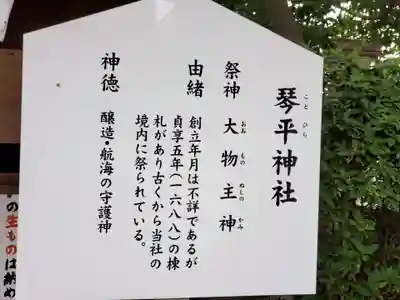 琴平神社
ことひら
祭神 大物主神
おおものぬしのかみ
由緒 創立年月は不詳であるが
貞享五年(一六八八)の棟
札があり古くから当社の
境内に祭られている。
神徳 醸造・航海の守護神
の生ものは納め